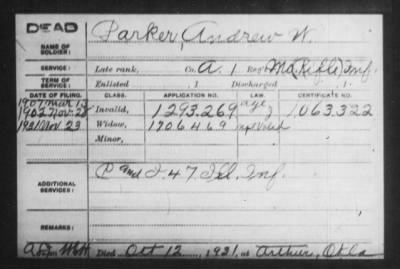 DEAD
Parker, Andrew W.
NAME OF SOLDIER:
SERVICE:
Late rank, Co. A. 1 Reg't Mo(Rifle)Inf.
TERM OF SERVICE:
Enlisted , 1 Discharged , 1
DATE OF FILING. CLASS. APPLICATION NO. LAW. CERTIFICATE NO.
1907 Mar 12 age
1902 Nov. 28 Invalid, 1293.269 1,063.322
1921 Nov 23 Widow, 1206469
Minor,
ADDITIONAL SERVICES:
P and I. 47 Ill. Inf.
REMARKS:
Died Oct 12, 1921, at Arthur, Okla